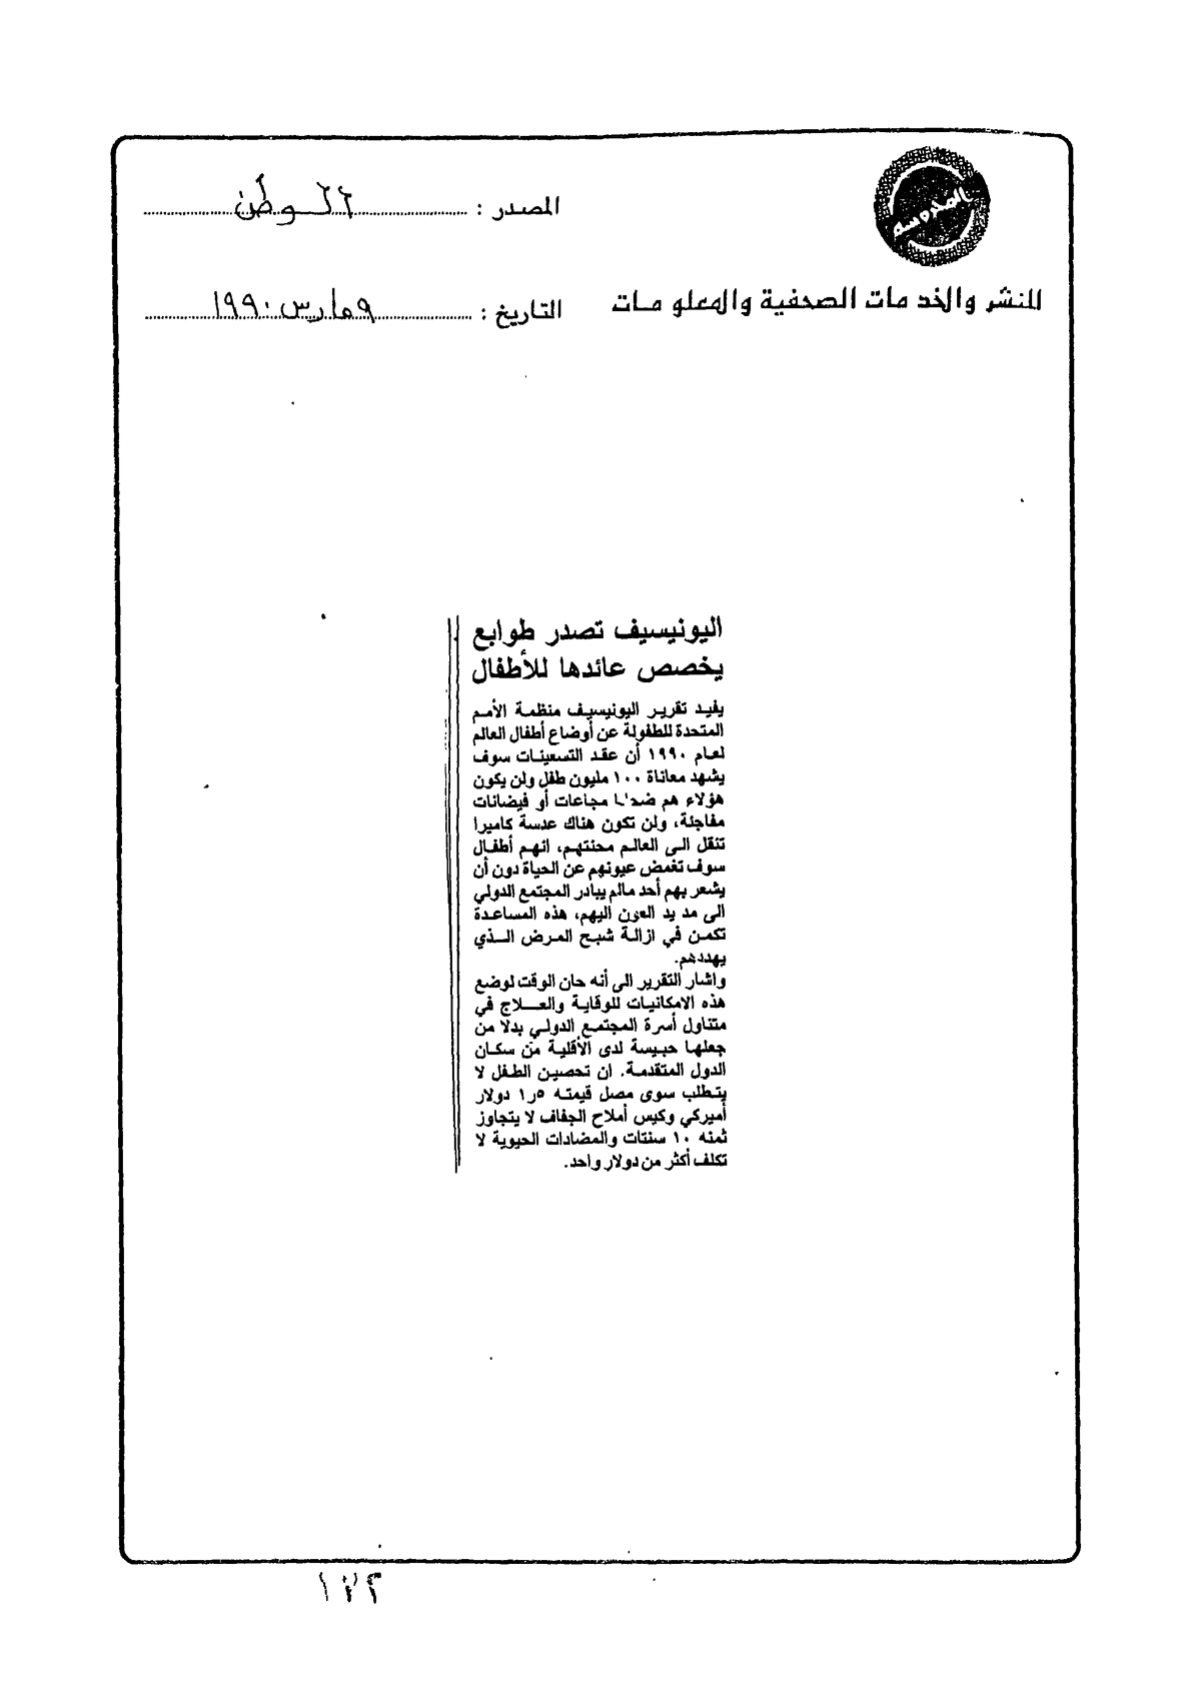 المصدر : الوطن
للنشر والخدمات الصحفية والمعلومات
التاريخ : ٩ مارس ١٩٩٠
اليونيسيف تصدر طوابع
يخصص عائدها للأطفال
يفيد تقرير اليونيسيف منظمة الأمم
المتحدة للطفولة عن أوضاع أطفال العالم
لعام ١٩٩٠ أن عقد التسعينات سوف
يشهد معاناة ١٠٠ مليون طفل ولن يكون
هؤلاء هم ضحايا مجاعات أو فيضانات
مفاجئة، ولن تكون هناك عدسة كاميرا
تنقل الى العالم محنتهم، انهم أطفال
سوف تغمض عيونهم عن الحياة دون أن
يشعر بهم أحد مالم يبادر المجتمع الدولي
الى مد يد العون اليهم، هذه المساعدة
تكمن في ازالة شبح المرض الذي
يهددهم.
واشار التقرير الى أنه حان الوقت لوضع
هذه الامكانيات للوقاية والعلاج في
متناول أسرة المجتمع الدولي بدلا من
جعلها حبيسة لدى الأقلية من سكان
الدول المتقدمة. ان تحصين الطفل لا
يتطلب سوى مصل قيمته ١٫٥ دولار
أميركي وكيس أملاح الجفاف لا يتجاوز
ثمنه ١٠ سنتات والمضادات الحيوية لا
تكلف أكثر من دولار واحد.